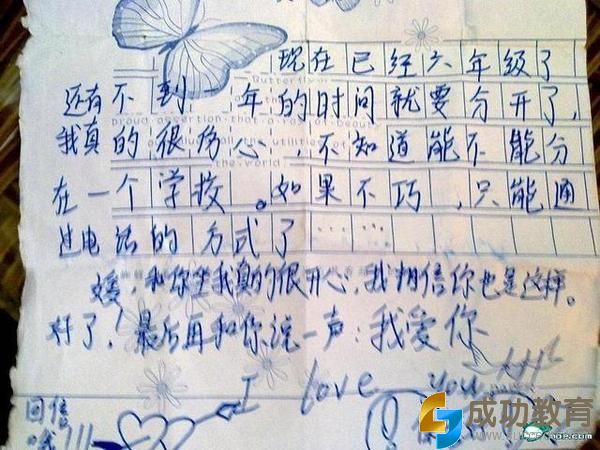 现在已经六年级了
还有不到一年的时间就要分开了,
我真的很伤心,不知道能不能分
在一个学校。如果不巧,只能通
过电话的方式了……
和你坐我真的很开心,我相信你也是这样。
好了!最后再和你说一声:我爱你
I love you
回信
哦!!!
成功教育